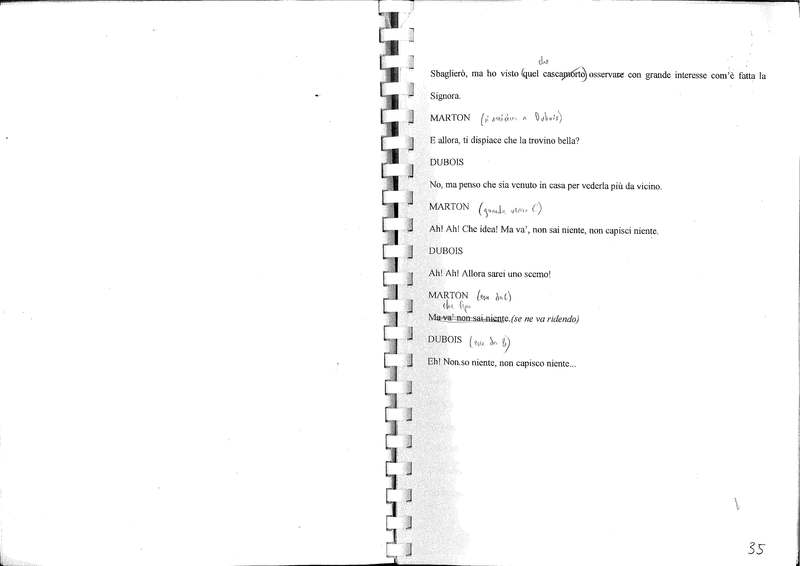 che
Sbaglierò, ma ho visto (quel cascamorto) osservare con grande interesse com'è fatta la
Signora.
MARTON (si avvicina a Dubois)
E allora, ti dispiace che la trovino bella?
DUBOIS
No, ma penso che sia venuto in casa per vederla più da vicino.
MARTON (guarda verso C)
Ah! Ah! Che idea! Ma va', non sai niente, non capisci niente.
DUBOIS
Ah! Ah! Allora sarei uno scemo!
MARTON (esce da C)
che tipo
Ma va' non sai niente.(se ne va ridendo)
DUBOIS (esce da B)
Eh! Non so niente, non capisco niente...
35